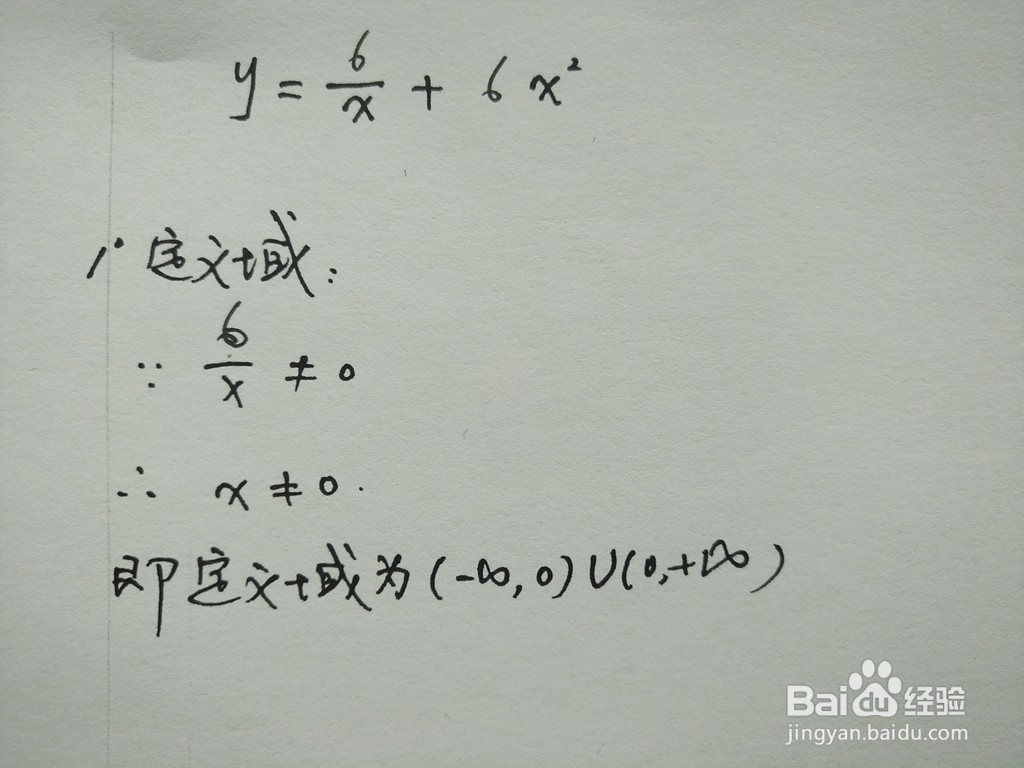 y = 6/x + 6x²
1° 定义域:
∵ 6/x ≠ 0
∴ x ≠ 0.
即定义域为(-∞,0)∪(0,+∞)
Bai du 经验
jingyan.baidu.com